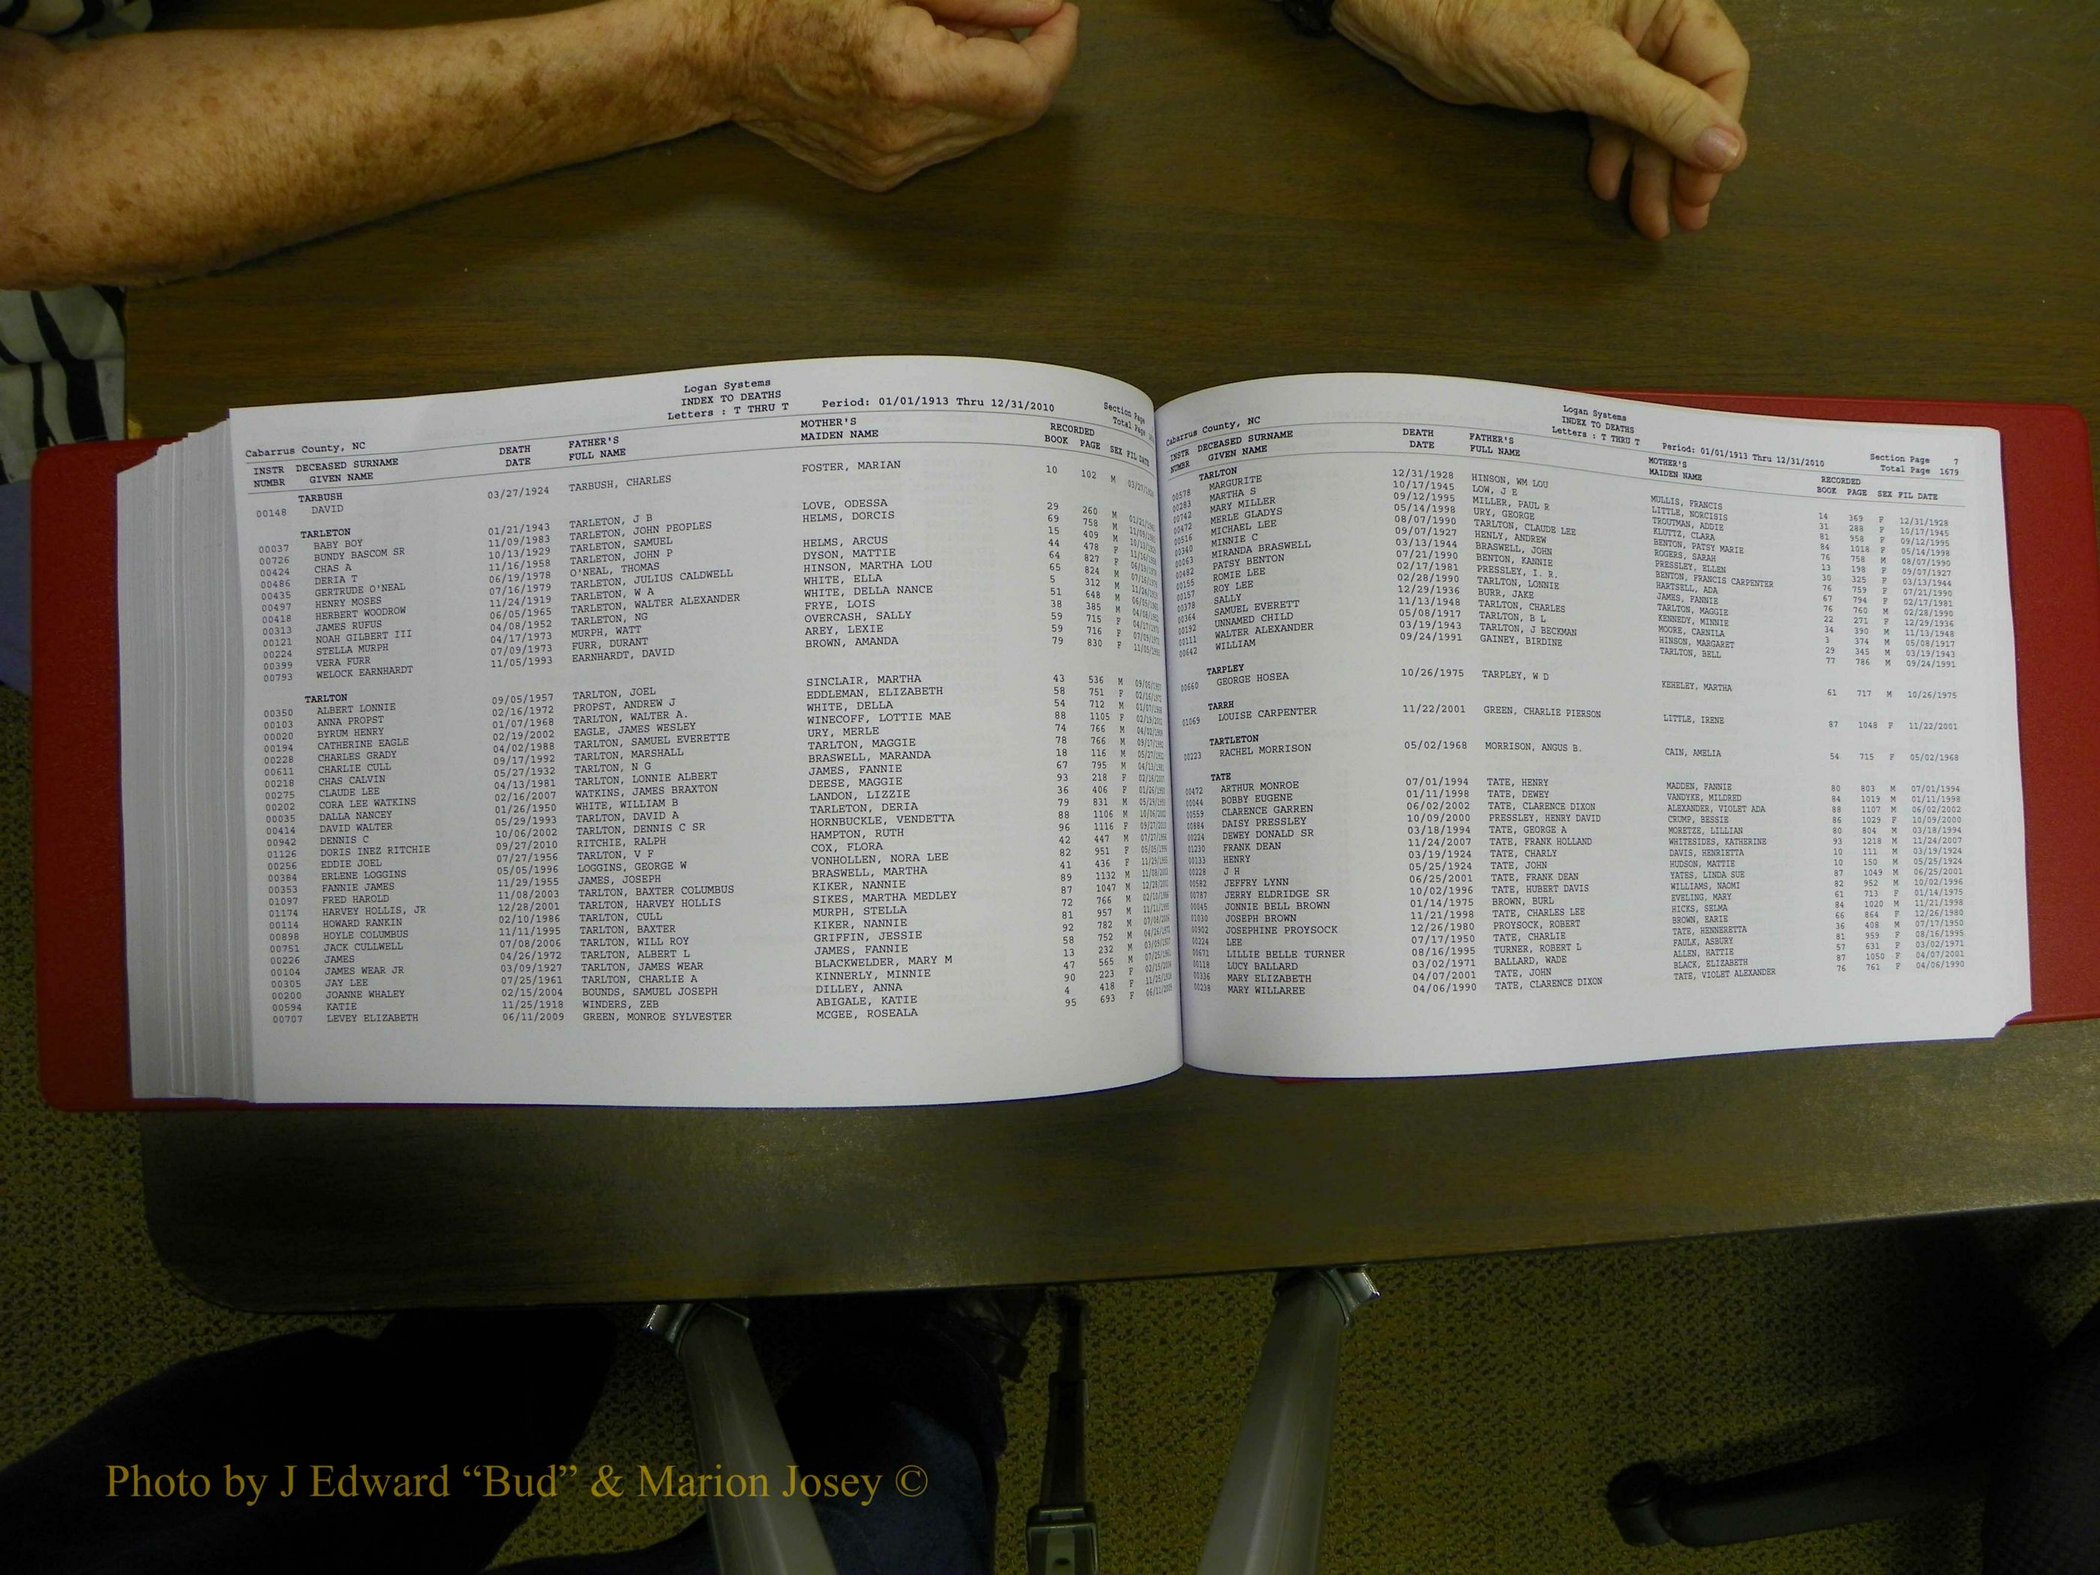 Logan Systems
INDEX TO DEATHS
Letters : T THRU T Period: 01/01/1913 Thru 12/31/2010 Section Page
Cabarrus County, NC Total Page
INSTR DECEASED SURNAME DEATH FATHER'S MOTHER'S RECORDED
NUMBR GIVEN NAME DATE FULL NAME MAIDEN NAME BOOK PAGE SEX FIL DATE
TARBUSH
00148 DAVID 03/27/1924 TARBUSH, CHARLES FOSTER, MARIAN 10 102 M
TARLETON
00037 BABY BOY 01/21/1943 TARLETON, J B LOVE, ODESSA 29 260 M
00726 BUNDY BASCOM SR 11/09/1983 TARLETON, JOHN PEOPLES HELMS, DORCIS 69 758 M
00424 CHAS A 10/13/1929 TARLETON, SAMUEL 15 409 M
00486 DERIA T 11/16/1958 TARLETON, JOHN P HELMS, ARCUS 44 478 F
00435 GERTRUDE O'NEAL 06/19/1978 O'NEAL, THOMAS DYSON, MATTIE 64 827 F
00497 HENRY MOSES 07/16/1979 TARLETON, JULIUS CALDWELL HINSON, MARTHA LOU 65 824 M
00418 HERBERT WOODROW 11/24/1919 TARLETON, W A WHITE, ELLA 5 312 M
00313 JAMES RUFUS 06/05/1965 TARLETON, WALTER ALEXANDER WHITE, DELLA NANCE 51 648 M
00121 NOAH GILBERT III 04/08/1952 TARLETON, NG FRYE, LOIS 38 385 M
00224 STELLA MURPH 04/17/1973 MURPH, WATT OVERCASH, SALLY 59 715 F
00399 VERA FURR 07/09/1973 FURR, DURANT AREY, LEXIE 59 716 F
00793 WELOCK EARNHARDT 11/05/1993 EARNHARDT, DAVID BROWN, AMANDA 79 830 F
TARLTON
00350 ALBERT LONNIE 09/05/1957 TARLTON, JOEL SINCLAIR, MARTHA 43 536 M
00103 ANNA PROPST 02/16/1972 PROPST, ANDREW J EDDLEMAN, ELIZABETH 58 751 F
00020 BYRUM HENRY 01/07/1968 TARLTON, WALTER A. WHITE, DELLA 54 712 M
00194 CATHERINE EAGLE 02/19/2002 EAGLE, JAMES WESLEY WINECOFF, LOTTIE MAE 88 1105 F
00228 CHARLES GRADY 04/02/1988 TARLTON, SAMUEL EVERETTE URY, MERLE 74 766 M
00611 CHARLIE CULL 09/17/1992 TARLTON, MARSHALL TARLTON, MAGGIE 78 766 M
00218 CHAS CALVIN 05/27/1932 TARLTON, N G BRASWELL, MARANDA 18 116 M
00275 CLAUDE LEE 04/13/1981 TARLTON, LONNIE ALBERT JAMES, FANNIE 67 795 M
00202 CORA LEE WATKINS 02/16/2007 WATKINS, JAMES BRAXTON DEESE, MAGGIE 93 218 F
00035 DALLA NANCEY 01/26/1950 WHITE, WILLIAM B LANDON, LIZZIE 36 406 F
00414 DAVID WALTER 05/29/1993 TARLTON, DAVID A TARLETON, DERIA 79 831 M
00942 DENNIS C 10/06/2002 TARLTON, DENNIS C SR HORNBUCKLE, VENDETTA 88 1106 M
01126 DORIS INEZ RITCHIE 09/27/2010 RITCHIE, RALPH HAMPTON, RUTH 96 1116 F
00256 EDDIE JOEL 07/27/1956 TARLTON, V F COX, FLORA 42 447 M
00384 ERLENE LOGGINS 05/05/1996 LOGGINS, GEORGE W VONHOLLEN, NORA LEE 82 951 F
00353 FANNIE JAMES 11/29/1955 JAMES, JOSEPH BRASWELL, MARTHA 41 436 F
01097 FRED HAROLD 11/08/2003 TARLTON, BAXTER COLUMBUS KIKER, NANNIE 89 1132 M
01174 HARVEY HOLLIS, JR 12/28/2001 TARLTON, HARVEY HOLLIS SIKES, MARTHA MEDLEY 87 1047 M
00114 HOWARD RANKIN 02/10/1986 TARLTON, CULL MURPH, STELLA 72 766 M
00898 HOYLE COLUMBUS 11/11/1995 TARLTON, BAXTER KIKER, NANNIE 81 957 M
00751 JACK CULLWELL 07/08/2006 TARLTON, WILL ROY GRIFFIN, JESSIE 92 782 M
00226 JAMES 04/26/1972 TARLTON, ALBERT L JAMES, FANNIE 58 752 M
00104 JAMES WEAR JR 03/09/1927 TARLTON, JAMES WEAR BLACKWELDER, MARY M 13 232 M
00305 JAY LEE 07/25/1961 TARLTON, CHARLIE A KINNERLY, MINNIE 47 565 M
00200 JOANNE WHALEY 02/15/2004 BOUNDS, SAMUEL JOSEPH DILLEY, ANNA 90 223 F
00594 KATIE 11/25/1918 WINDERS, ZEB ABIGALE, KATIE 4 418 F
00707 LEVEY ELIZABETH 06/11/2009 GREEN, MONROE SYLVESTER MCGEE, ROSEALA 95 693 F
Logan Systems
INDEX TO DEATHS
Letters : T THRU T Period: 01/01/1913 Thru 12/31/2010 Section Page 7
Cabarrus County, NC Total Page 1679
INSTR DECEASED SURNAME DEATH FATHER'S MOTHER'S RECORDED
NUMBR GIVEN NAME DATE FULL NAME MAIDEN NAME BOOK PAGE SEX FIL DATE
TARLTON
00578 MARGURITE 12/31/1928 HINSON, WM LOU MULLIS, FRANCIS 14 369 F 12/31/1928
00283 MARTHA S 10/17/1945 LOW, J E LITTLE, NORCISIS 31 288 F 10/17/1945
00742 MARY MILLER 09/12/1995 MILLER, PAUL R TROUTMAN, ADDIE 81 958 F 09/12/1995
00472 MERLE GLADYS 05/14/1998 URY, GEORGE KLUTTZ, CLARA 84 1018 F 05/14/1998
00516 MICHAEL LEE 08/07/1990 TARLTON, CLAUDE LEE BENTON, PATSY MARIE 76 758 M 08/07/1990
00340 MINNIE C 09/07/1927 HENLY, ANDREW ROGERS, SARAH 13 198 F 09/07/1927
00063 MIRANDA BRASWELL 03/13/1944 BRASWELL, JOHN PRESSLEY, ELLEN 30 325 F 03/13/1944
00482 PATSY BENTON 07/21/1990 BENTON, KANNIE BENTON, FRANCIS CARPENTER 76 759 F 07/21/1990
00155 ROMIE LEE 02/17/1981 PRESSLEY, I. R. HARTSELL, ADA 67 794 F 02/17/1981
00157 ROY LEE 02/28/1990 TARLTON, LONNIE JAMES, FANNIE 76 760 M 02/28/1990
00378 SALLY 12/29/1936 BURR, JAKE TARLTON, MAGGIE 22 271 F 12/29/1936
00364 SAMUEL EVERETT 11/13/1948 TARLTON, CHARLES KENNEDY, MINNIE 34 390 M 11/13/1948
00192 UNNAMED CHILD 05/08/1917 TARLTON, B L MOORE, CARNILA 3 374 M 05/08/1917
00111 WALTER ALEXANDER 03/19/1943 TARLTON, J BECKMAN HINSON, MARGARET 29 345 M 03/19/1943
00642 WILLIAM 09/24/1991 GAINEY, BIRDINE TARLTON, BELL 77 786 M 09/24/1991
TARPLEY
00660 GEORGE HOSEA 10/26/1975 TARPLEY, W D KEHELEY, MARTHA 61 717 M 10/26/1975
TARRH
01069 LOUISE CARPENTER 11/22/2001 GREEN, CHARLIE PIERSON LITTLE, IRENE 87 1048 F 11/22/2001
TARTLETON
00223 RACHEL MORRISON 05/02/1968 MORRISON, ANGUS B. CAIN, AMELIA 54 715 F 05/02/1968
TATE
00472 ARTHUR MONROE 07/01/1994 TATE, HENRY MADDEN, FANNIE 80 803 M 07/01/1994
00044 BOBBY EUGENE 01/11/1998 TATE, DEWEY VANDYKE, MILDRED 84 1019 M 01/11/1998
00559 CLARENCE GARREN 06/02/2002 TATE, CLARENCE DIXON ALEXANDER, VIOLET ADA 88 1107 M 06/02/2002
00984 DAISY PRESSLEY 10/09/2000 PRESSLEY, HENRY DAVID CRUMP, BESSIE 86 1029 F 10/09/2000
00224 DEWEY DONALD SR 03/18/1994 TATE, GEORGE A MORETZE, LILLIAN 80 804 M 03/18/1994
01230 FRANK DEAN 11/24/2007 TATE, FRANK HOLLAND WHITESIDES, KATHERINE 93 1218 M 11/24/2007
00133 HENRY 03/19/1924 TATE, CHARLY DAVIS, HENRIETTA 10 111 M 03/19/1924
00228 J H 05/25/1924 TATE, JOHN HUDSON, MATTIE 10 150 M 05/25/1924
00582 JEFFRY LYNN 06/25/2001 TATE, FRANK DEAN YATES, LINDA SUE 87 1049 M 06/25/2001
00787 JERRY ELDRIDGE SR 10/02/1996 TATE, HUBERT DAVIS WILLIAMS, NAOMI 82 952 M 10/02/1996
00045 JONNIE BELL BROWN 01/14/1975 BROWN, BURL EVELING, MARY 61 713 F 01/14/1975
01030 JOSEPH BROWN 11/21/1998 TATE, CHARLES LEE HICKS, SELMA 84 1020 M 11/21/1998
00902 JOSEPHINE PROYSOCK 12/26/1980 PROYSOCK, ROBERT BROWN, EARIE 66 864 F 12/26/1980
00224 LEE 07/17/1950 TATE, CHARLIE TATE, HENNERETTA 36 408 M 07/17/1950
00671 LILLIE BELLE TURNER 08/16/1995 TURNER, ROBERT L FAULK, ASBURY 81 959 F 08/16/1995
00118 LUCY BALLARD 03/02/1971 BALLARD, WADE ALLEN, HATTIE 57 631 F 03/02/1971
00336 MARY ELIZABETH 04/07/2001 TATE, JOHN BLACK, ELIZABETH 87 1050 F 04/07/2001
00238 MARY WILLAREE 04/06/1990 TATE, CLARENCE DIXON TATE, VIOLET ALEXANDER 76 761 F 04/06/1990
Photo by J Edward “Bud” & Marion Josey ©